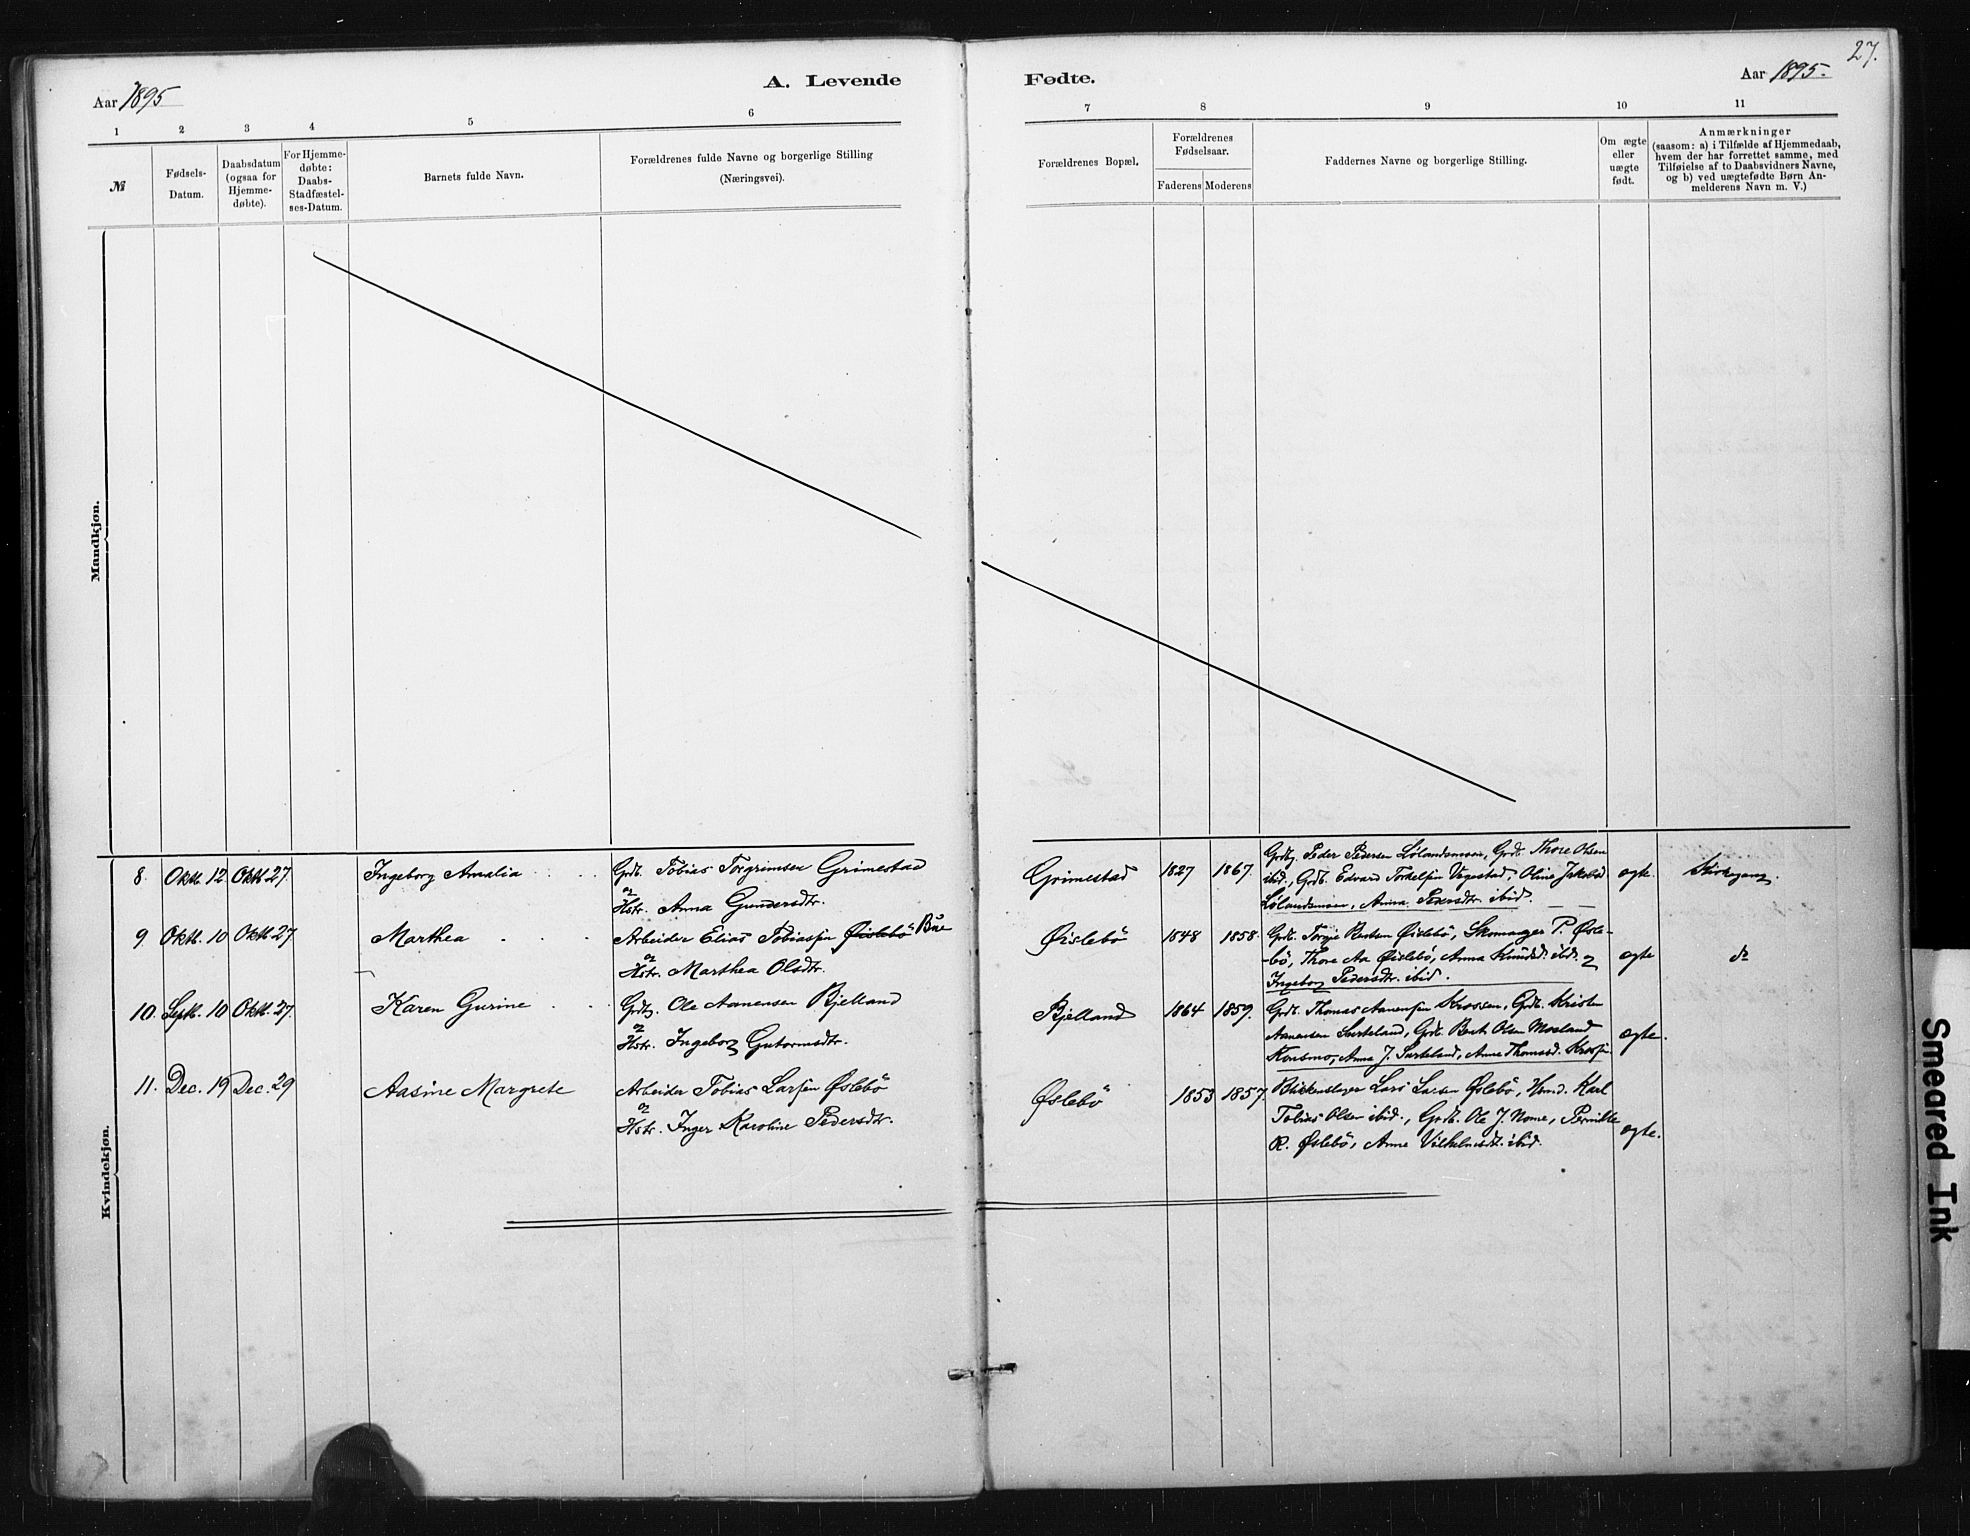 27.
Aar 1895
A. Levende
Fødte.
Aar 1895.
1 2 3 4 5 6
7 8 9 10 11
№
Fødsels-
Datum.
Daabsdatum
(ogsaa for
Hjemme-
døbte).
For Hjemme-
døbte:
Daabs-
Stadfæstel-
ses-Datum.
Barnets fulde Navn.
Forældrenes fulde Navne og borgerlige Stilling
(Næringsvei).
Forældrenes Bopæl.
Forældrenes
Fødselsaar.
Faderens Moderens
Faddernes Navne og borgerlige Stilling.
Om ægte
eller
uægte
født.
Anmærkninger
(saasom: a) i Tilfælde af Hjemmedaab,
hvem der har forrettet samme, med
Tilføielse af to Daabsvidners Navne,
og b) ved uægtefødte Børn An-
melderens Navn m. V.)
Mandkjøn.
Kvindekjøn.
8. Oktb. 12 Oktb. 27. Ingeborg Amalia Grdb. Tobias Torgrimsen Grimestad
og
Hstr. Anna Gundersdtr.
Grimestad 1827 1867.
Peder Pedersen Lølandsmoen, Grdb. Thore Olsen
ibid., Grdb. Edvard Torkelsen Vegestad, Oline Jakobsd.
Lølandsmoen, Anna Pedersdtr. ibid.
ægte.
9 Oktb. 10 Oktb. 27 Marthea Arbeider Elias Tobiassen Øislebö Bue
og
Hstr. Marthea Olsdtr.
Øislebö 1848 1858.
Grdb. Torje Bentsen Øislebö, Skomager P. Øsle-
-bö, Thore Aa Øislebö, Anna Knudsd. ibid. og
Ingeborg Pedersdtr. ibid.
ægte do
10. Septb. 10 Oktb. 27. Karen Gurine Ole Aanensen Bjelland
og
Hstr. Ingeborg Gutormsdtr.
Bjelland 1864 1859.
Grdb. Thomas Aanensen Krossen, Grdb. Kristen
Aanensen Surteland, Grdb. Bent Olsen Moeland
Konsmo, Anna J. Surteland, Anne Thomasd. Krossen
ægte.
11. Dec. 19 Dec. 29 Aasine Margrete Arbeider Tobias Larsen Øslebö
og
Hstr. Inger Karoline Pedersdtr.
Øslebö 1853 1857.
Blikkenslager Lars Larsen Øslebö, Karl
Tobias Olsen ibid., Grdb. Ole J. Nome, Pernille
R. Øslebö, Anne Vilhelmsdtr. ibid.
ægte.
Smeared Ink